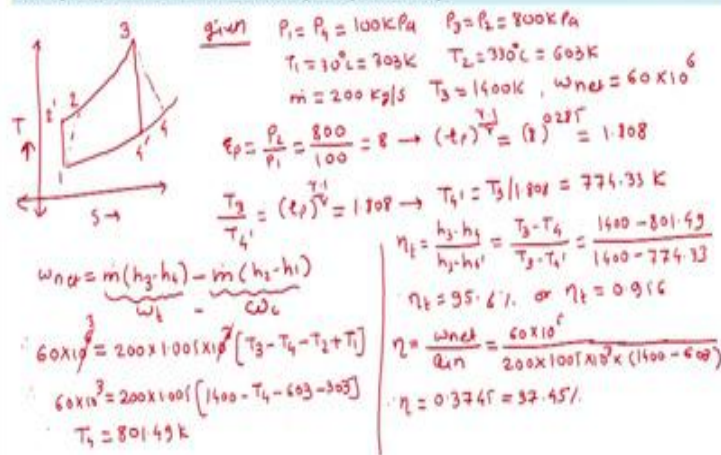 given P₁ = P₄ = 100KPa P₃ = P₂ = 800KPa
T₁ = 30°C = 303K T₂ = 330°C = 603K
ṁ = 200 kg/s T₃ = 1400K, Wnet = 60×10⁶
3
T ↑
2' 2
1
4' 4
S→
εp = P₂/P₁ = 800/100 = 8 → (εp)^(γ-1/γ) = (8)^0.285 = 1.808
T₃/T₄' = (εp)^(γ-1/γ) = 1.808 → T₄' = T₃/1.808 = 774.33 K
Wnet = ṁ(h₃-h₄) - ṁ(h₂-h₁)
Wt - Wc
60×10⁶ ³ = 200×1.005×10³ [T₃-T₄-T₂+T₁]
60×10³ = 200×1.005 [1400-T₄-603-303]
T₄ = 801.49K
ηt = h₃-h₄/h₃-h₄' = T₃-T₄/T₃-T₄' = 1400-801.49/1400-774.33
ηt = 95.6% or ηt = 0.956
η = Wnet/Qin = 60×10⁶/200×1005×10³×(1400-603)
η = 0.3745 = 37.45%